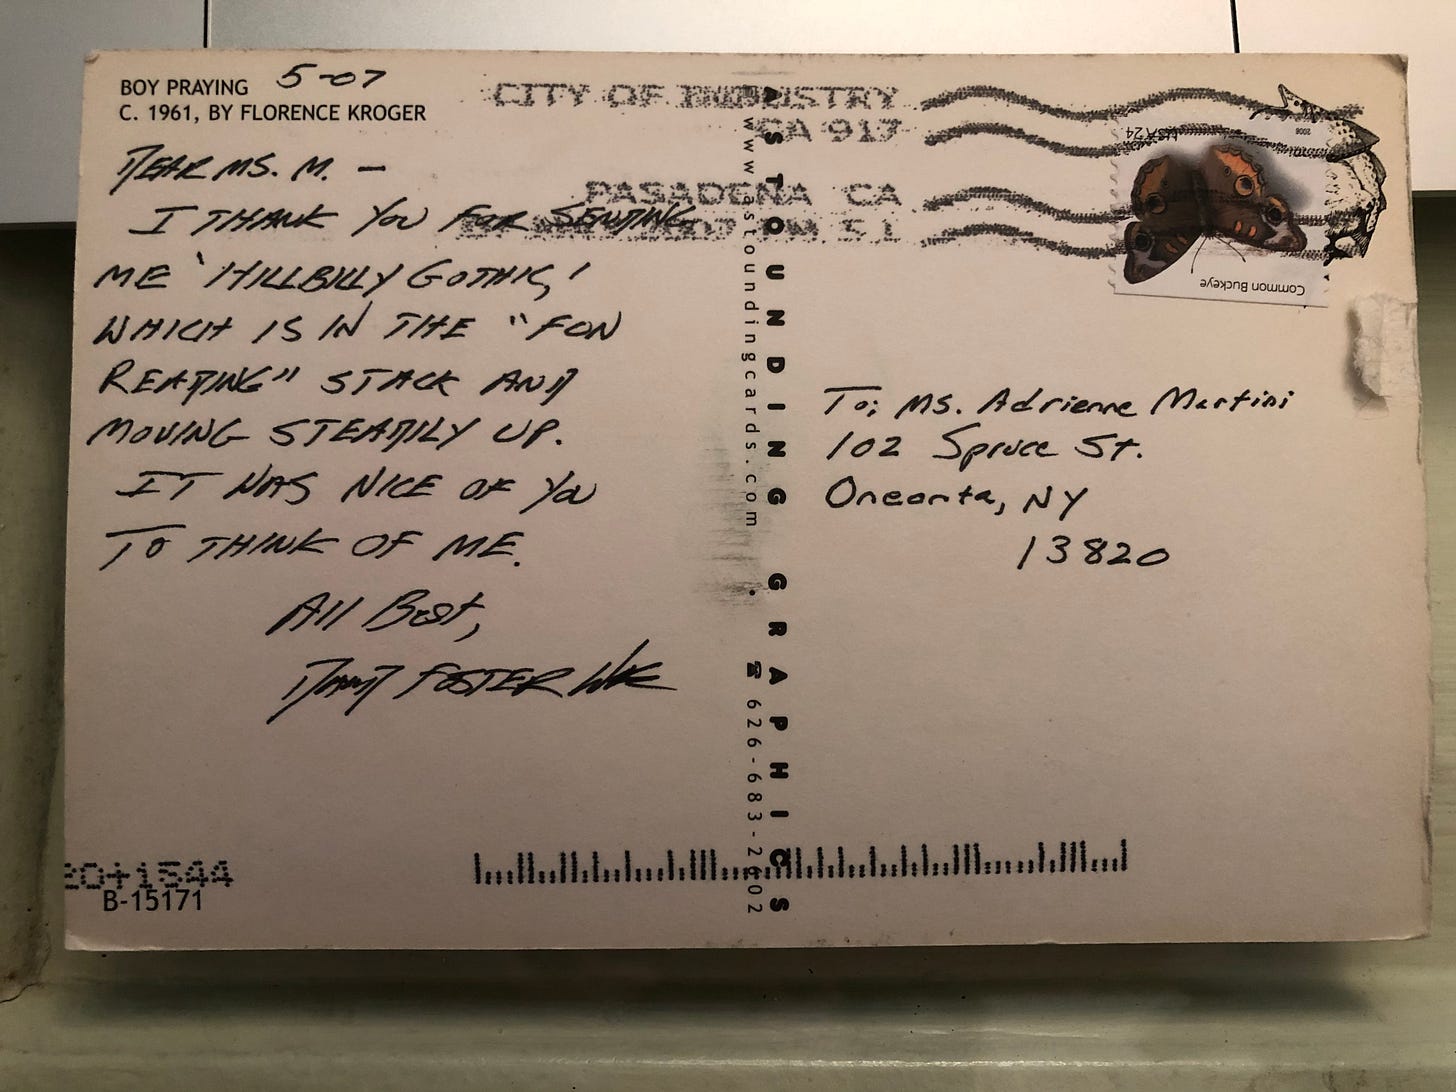 BOY PRAYING 5-07
C. 1961, BY FLORENCE KROGER
DEAR MS. M. —
I THANK YOU FOR SENDING
ME 'HILLBILLY GOTHIC,'
WHICH IS IN THE "FON
READING" STACK AND
MOVING STEADILY UP.
IT WAS NICE OF YOU
TO THINK OF ME.
All Best,
FOSTER
20+1544
B-15171
CITY OF INDUSTRY
CA 917
PASADENA CA
ASTOUNDING GRAPHICS
www.astoundingcards.com • ☎ 626-683-2602
USA 24
2006
Common Buckeye
To: MS. Adrienne Martini
102 Spruce St.
Oneonta, NY
13820